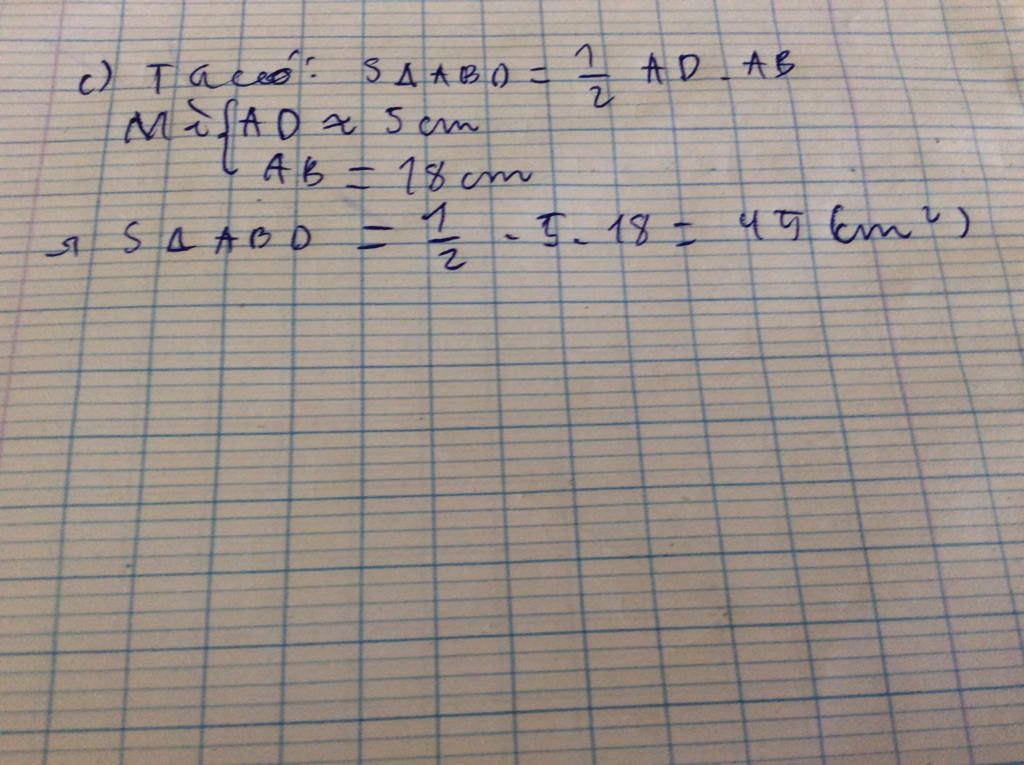 c) Ta có: SΔABD = 1/2 AD . AB
Mà { AD ≈ 5 cm
AB = 18 cm
=> SΔABD = 1/2 . 5 . 18 = 45 (cm²)